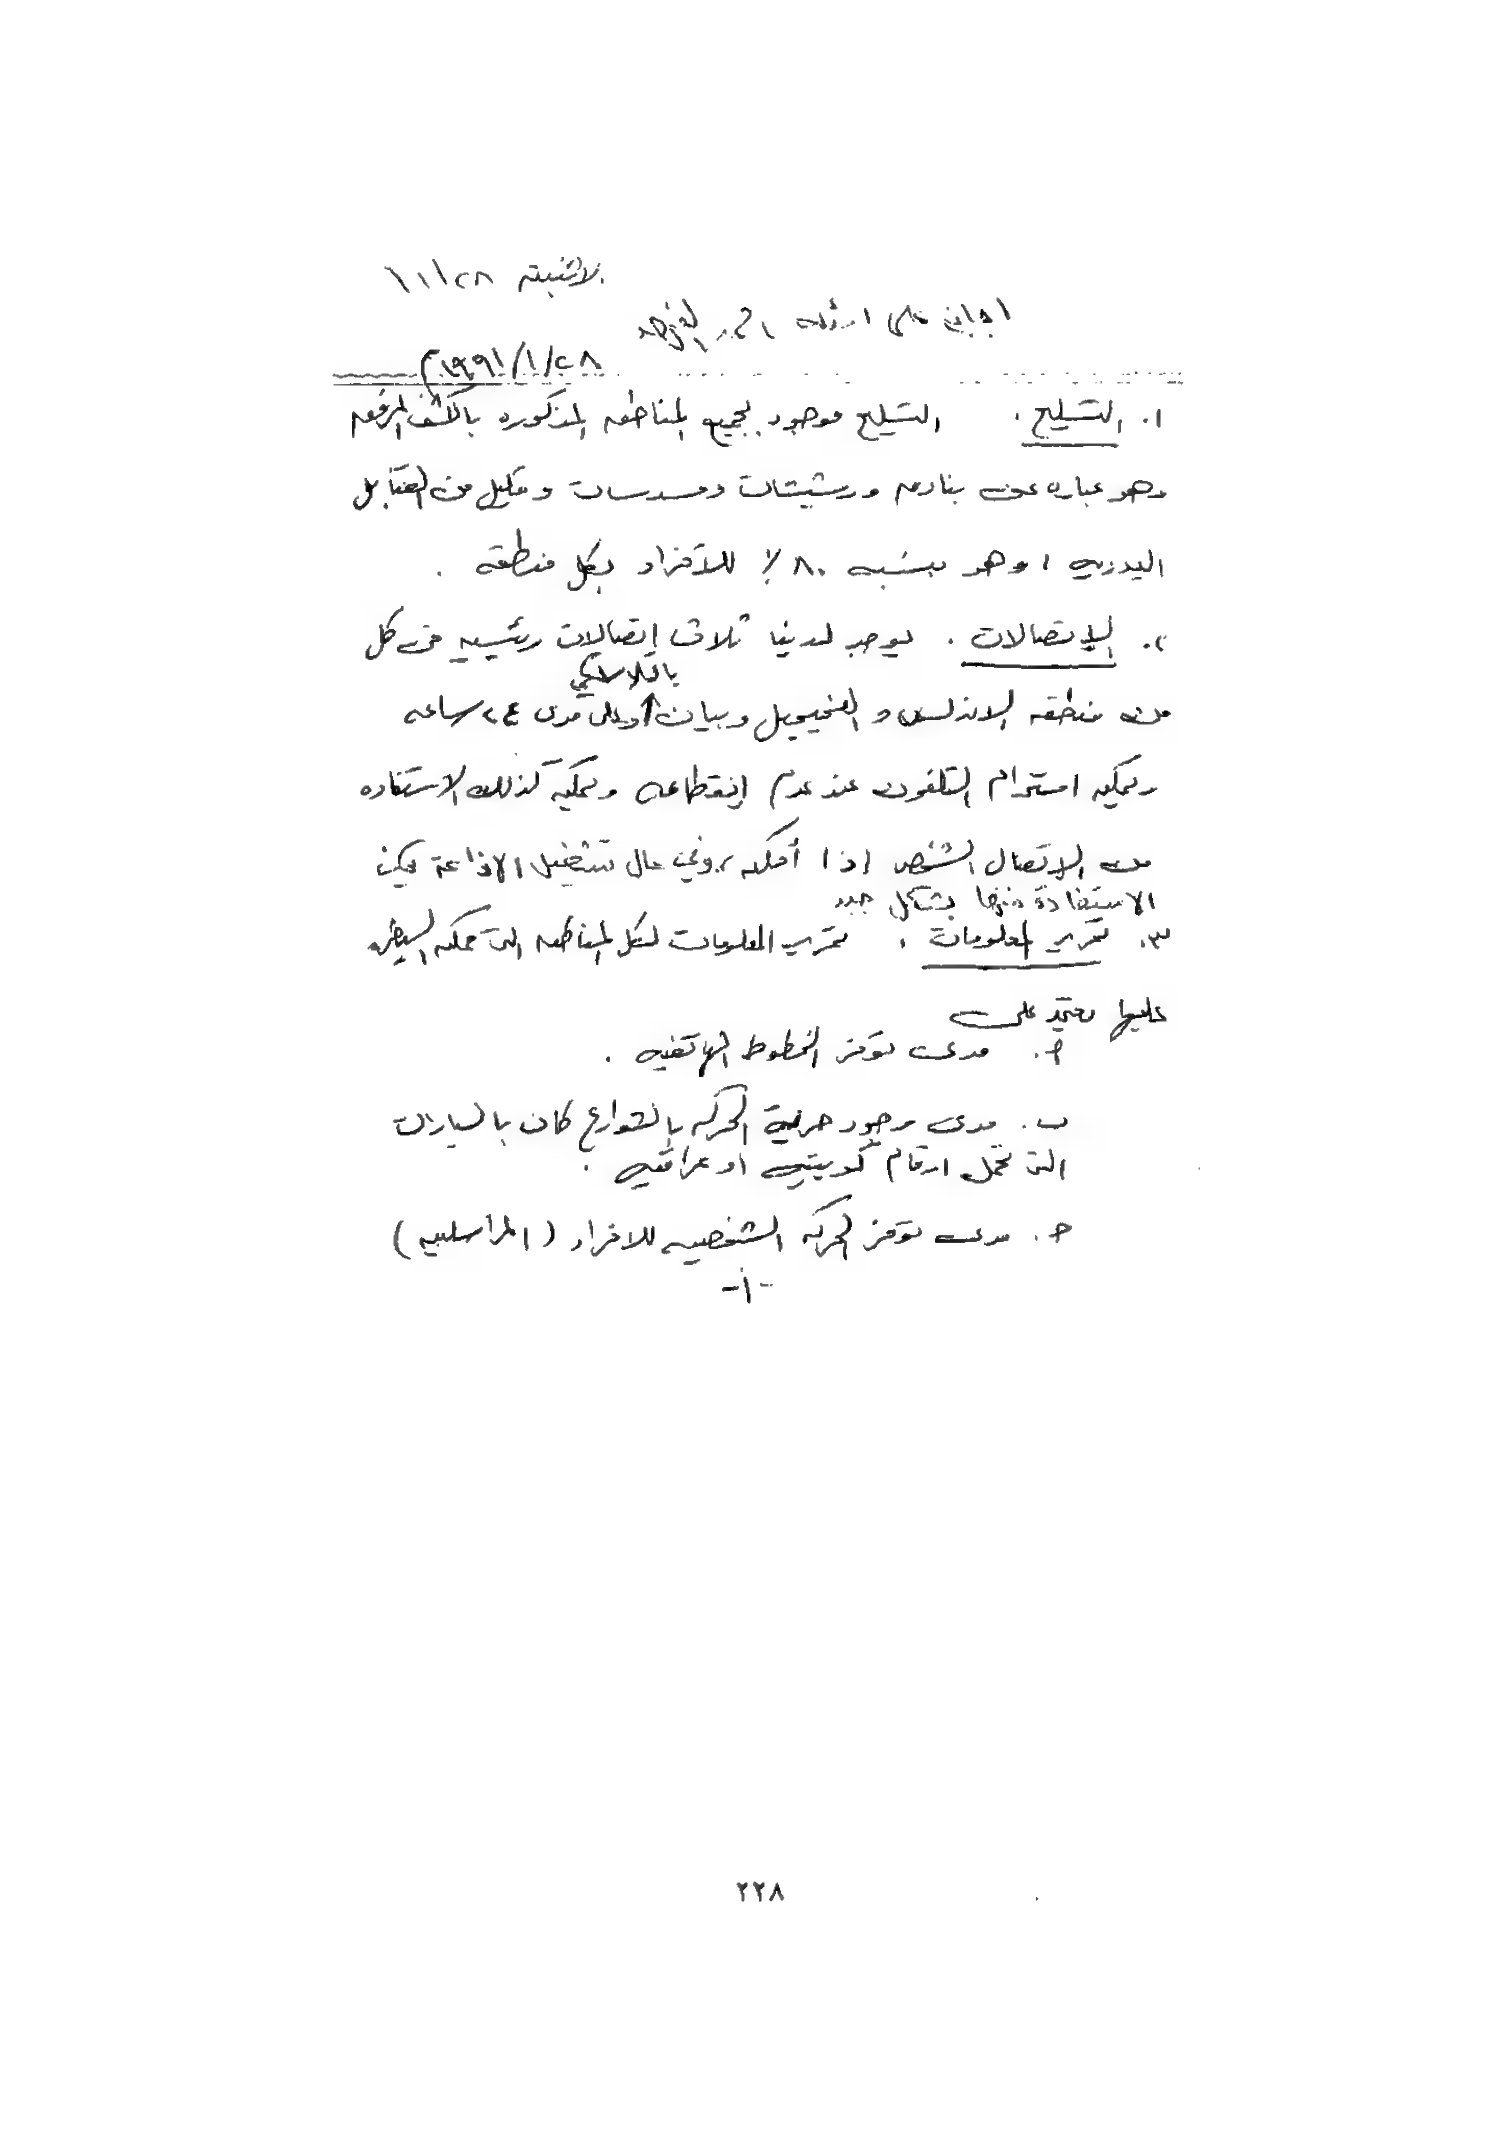 الاثنين ١/٢٨
اجابة على اسئلة
١٩٩١/١/٢٨م
١. التسليح. التسليح موجود بجميع المناطق المذكوره بالكشف المرفق
وهو عباره عن بنادق ورشيشات ومسدسات وقليل من القنابل
اليدويه، وهو بنسبه ٨٠٪ للأفراد بكل منطقة.
٢. الإتصالات. يوجد لدينا ثلاث إتصالات رئيسيه في كل
باللاسلكي
من منطقه الاندلس و الفحيحيل وبيان وعلى مدى ٢٤ ساعه
ويمكن استخدام التلفون عند عدم إنقطاعه ويمكن كذلك الاستفاده
من الإتصال الشخصي إذا أمكن وفي حال تشغيل الإذاعة يمكن
الاستفادة منها بشكل جيد
٣. تمرير المعلومات. تمرير المعلومات لكل المناطق التي تمكن السيطره
عليها يعتمد على
أ. مدى توفر الخطوط الهاتفيه.
ب. مدى وجود حرية الحركه بالشوارع كان بالسيارات
التي تحمل ارقام كويتيه او عراقيه.
ج. مدى توفر الحركه الشخصيه للافراد (المراسلين)
-١-
٢٢٨